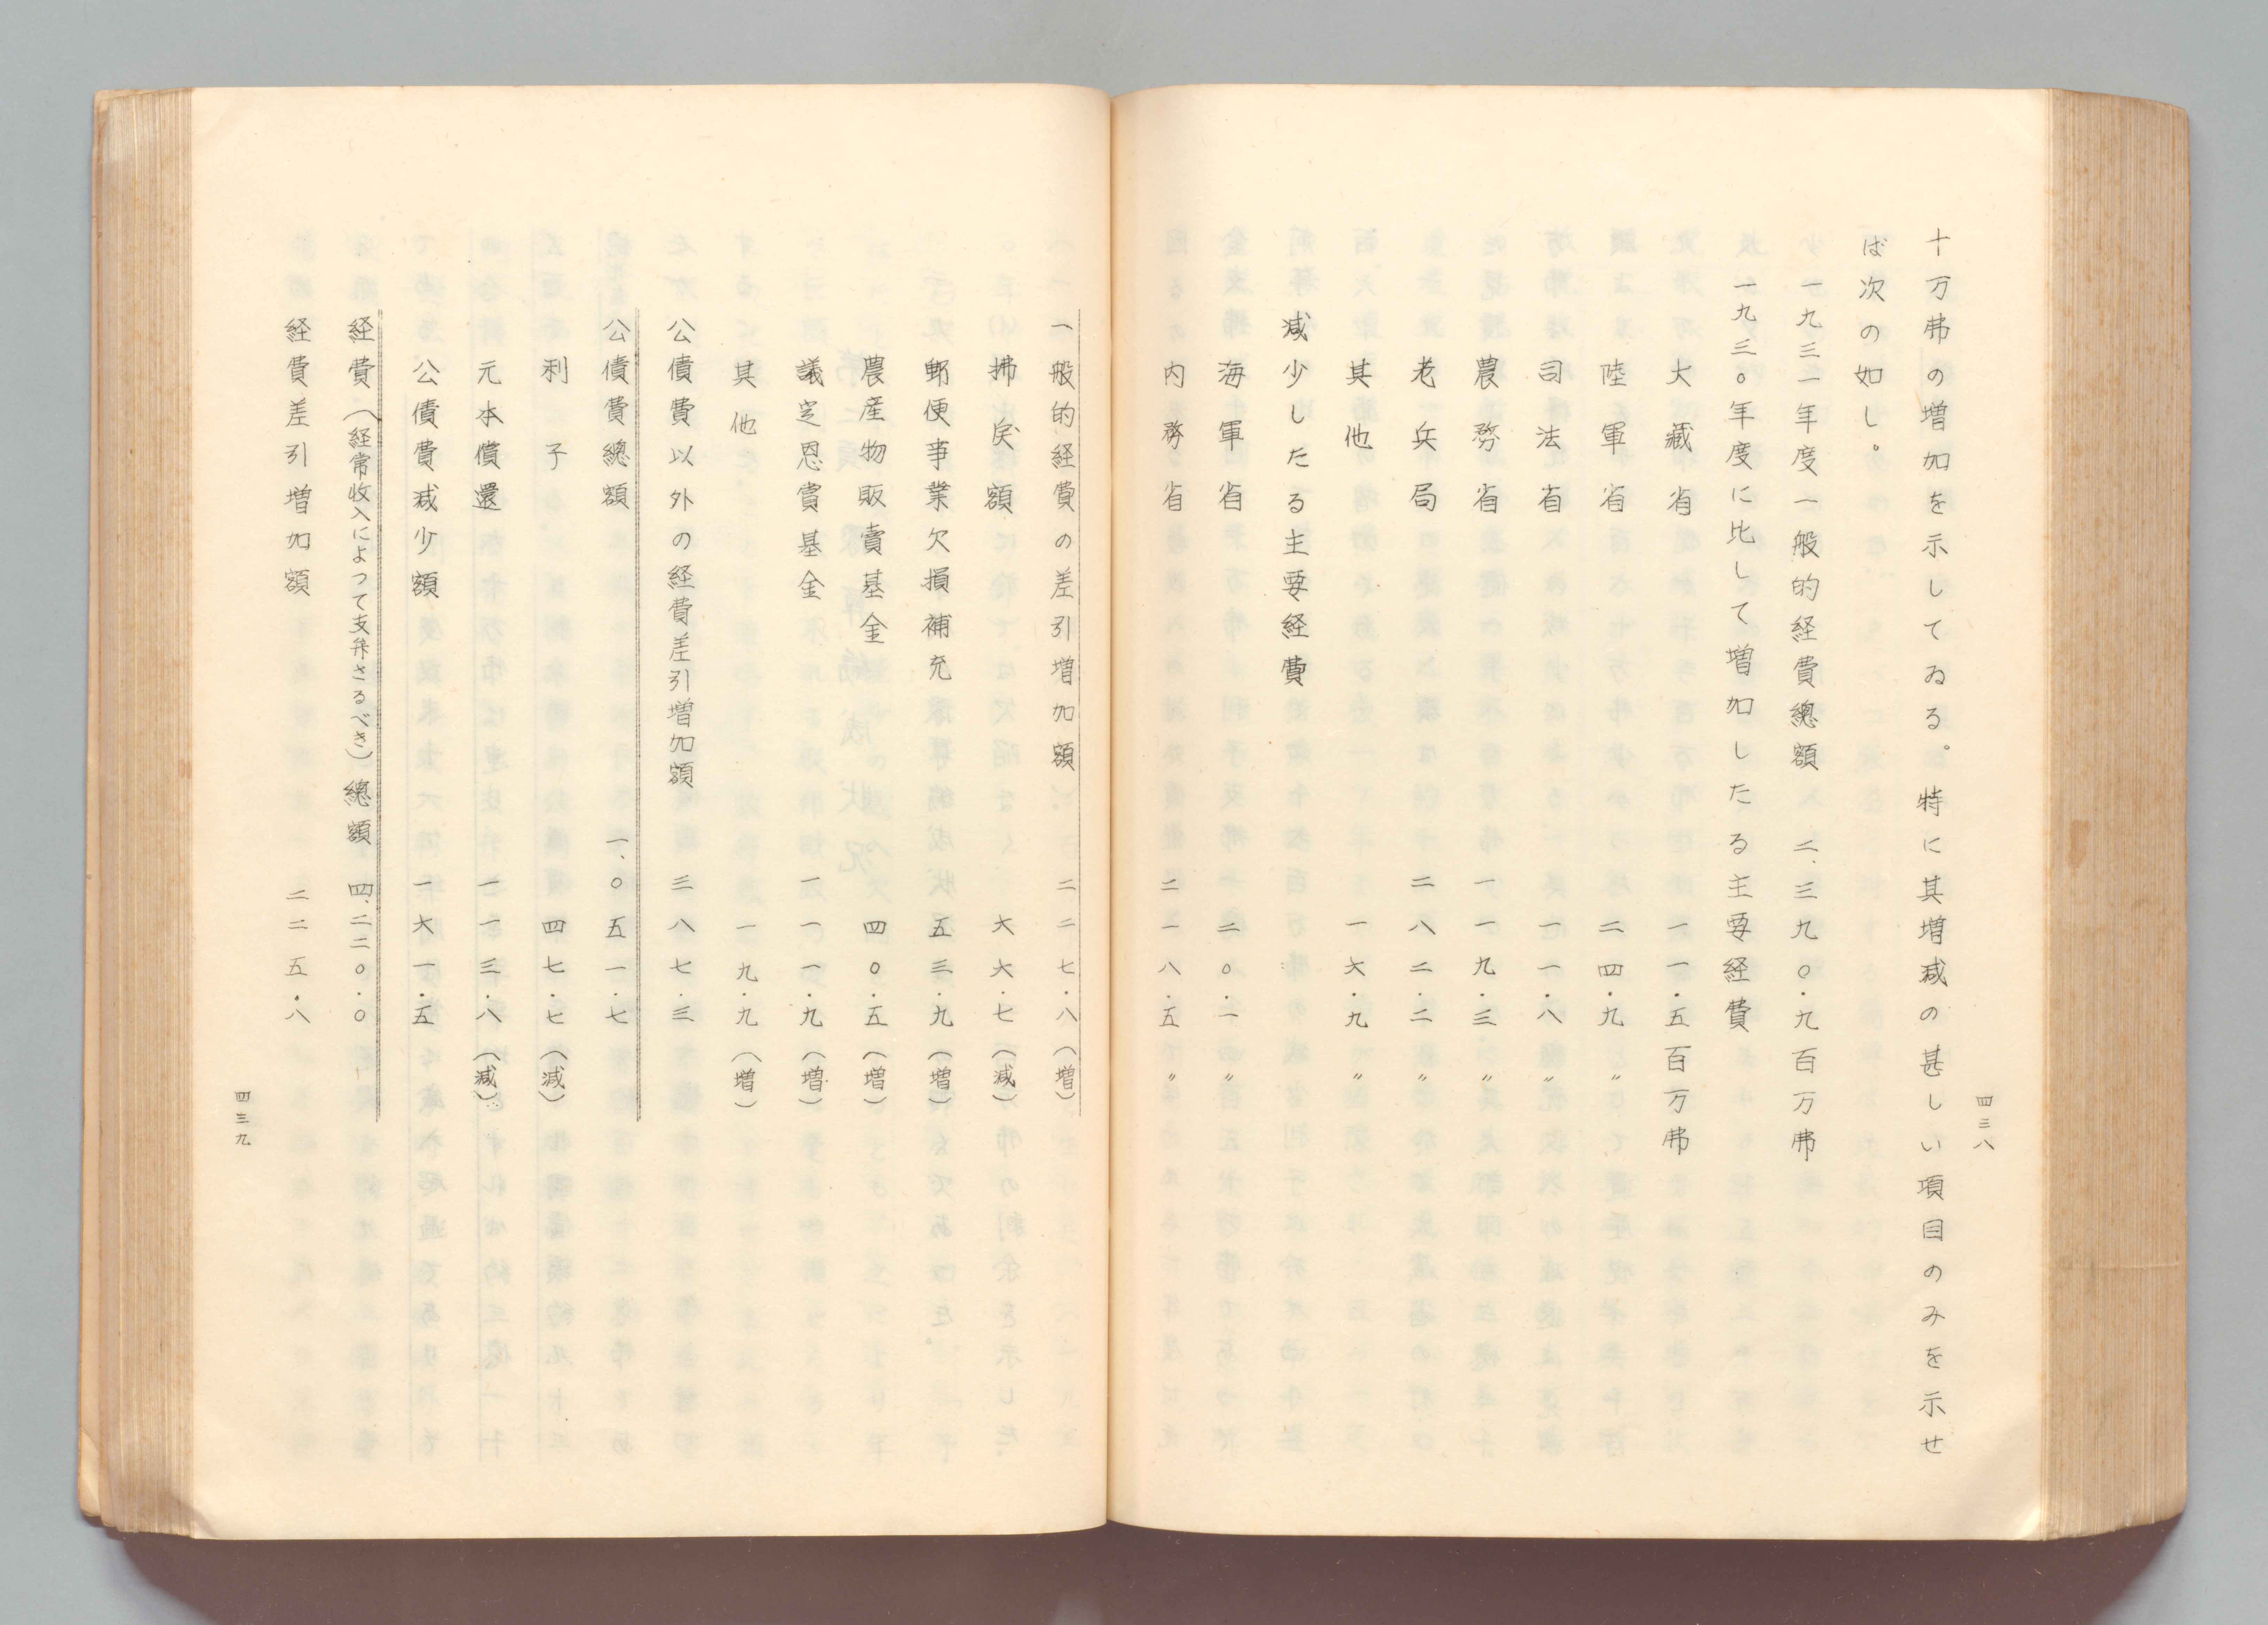 四三八
十万弗の増加を示してゐる。特に其増減の甚しい項目のみを示せ
ば次の如し。
一九三一年度一般的経費總額 二、三九〇・九百万弗
一九三〇年度に比して増加したる主要経費
大藏省 一一・五百万弗
陸軍省 二四・九〃
司法省 一一・八〃
農務省 一一九・三〃
老兵局 二八二・二〃
其他 一六・九〃
減少したる主要経費
海軍省 二〇・一〃
内務省 二一八・五〃
一般的経費の差引増加額 二二七・八(増)
拂戻額 六六・七(減)
郵便事業欠損補充 五三・九(増)
農産物販賣基金 四〇・五(増)
議定恩賞基金 一一一・九(増)
其他 一九・九(増)
公債費以外の経費差引増加額 三八七・三
公債費總額 一、〇五一・七
利子 四七・七(減)
元本償還 一一三・八(減)
公債費減少額 一六一・五
経費(経常收入によつて支弁さるべき)總額 四、二二〇・〇
経費差引増加額 二二五・八
四三九